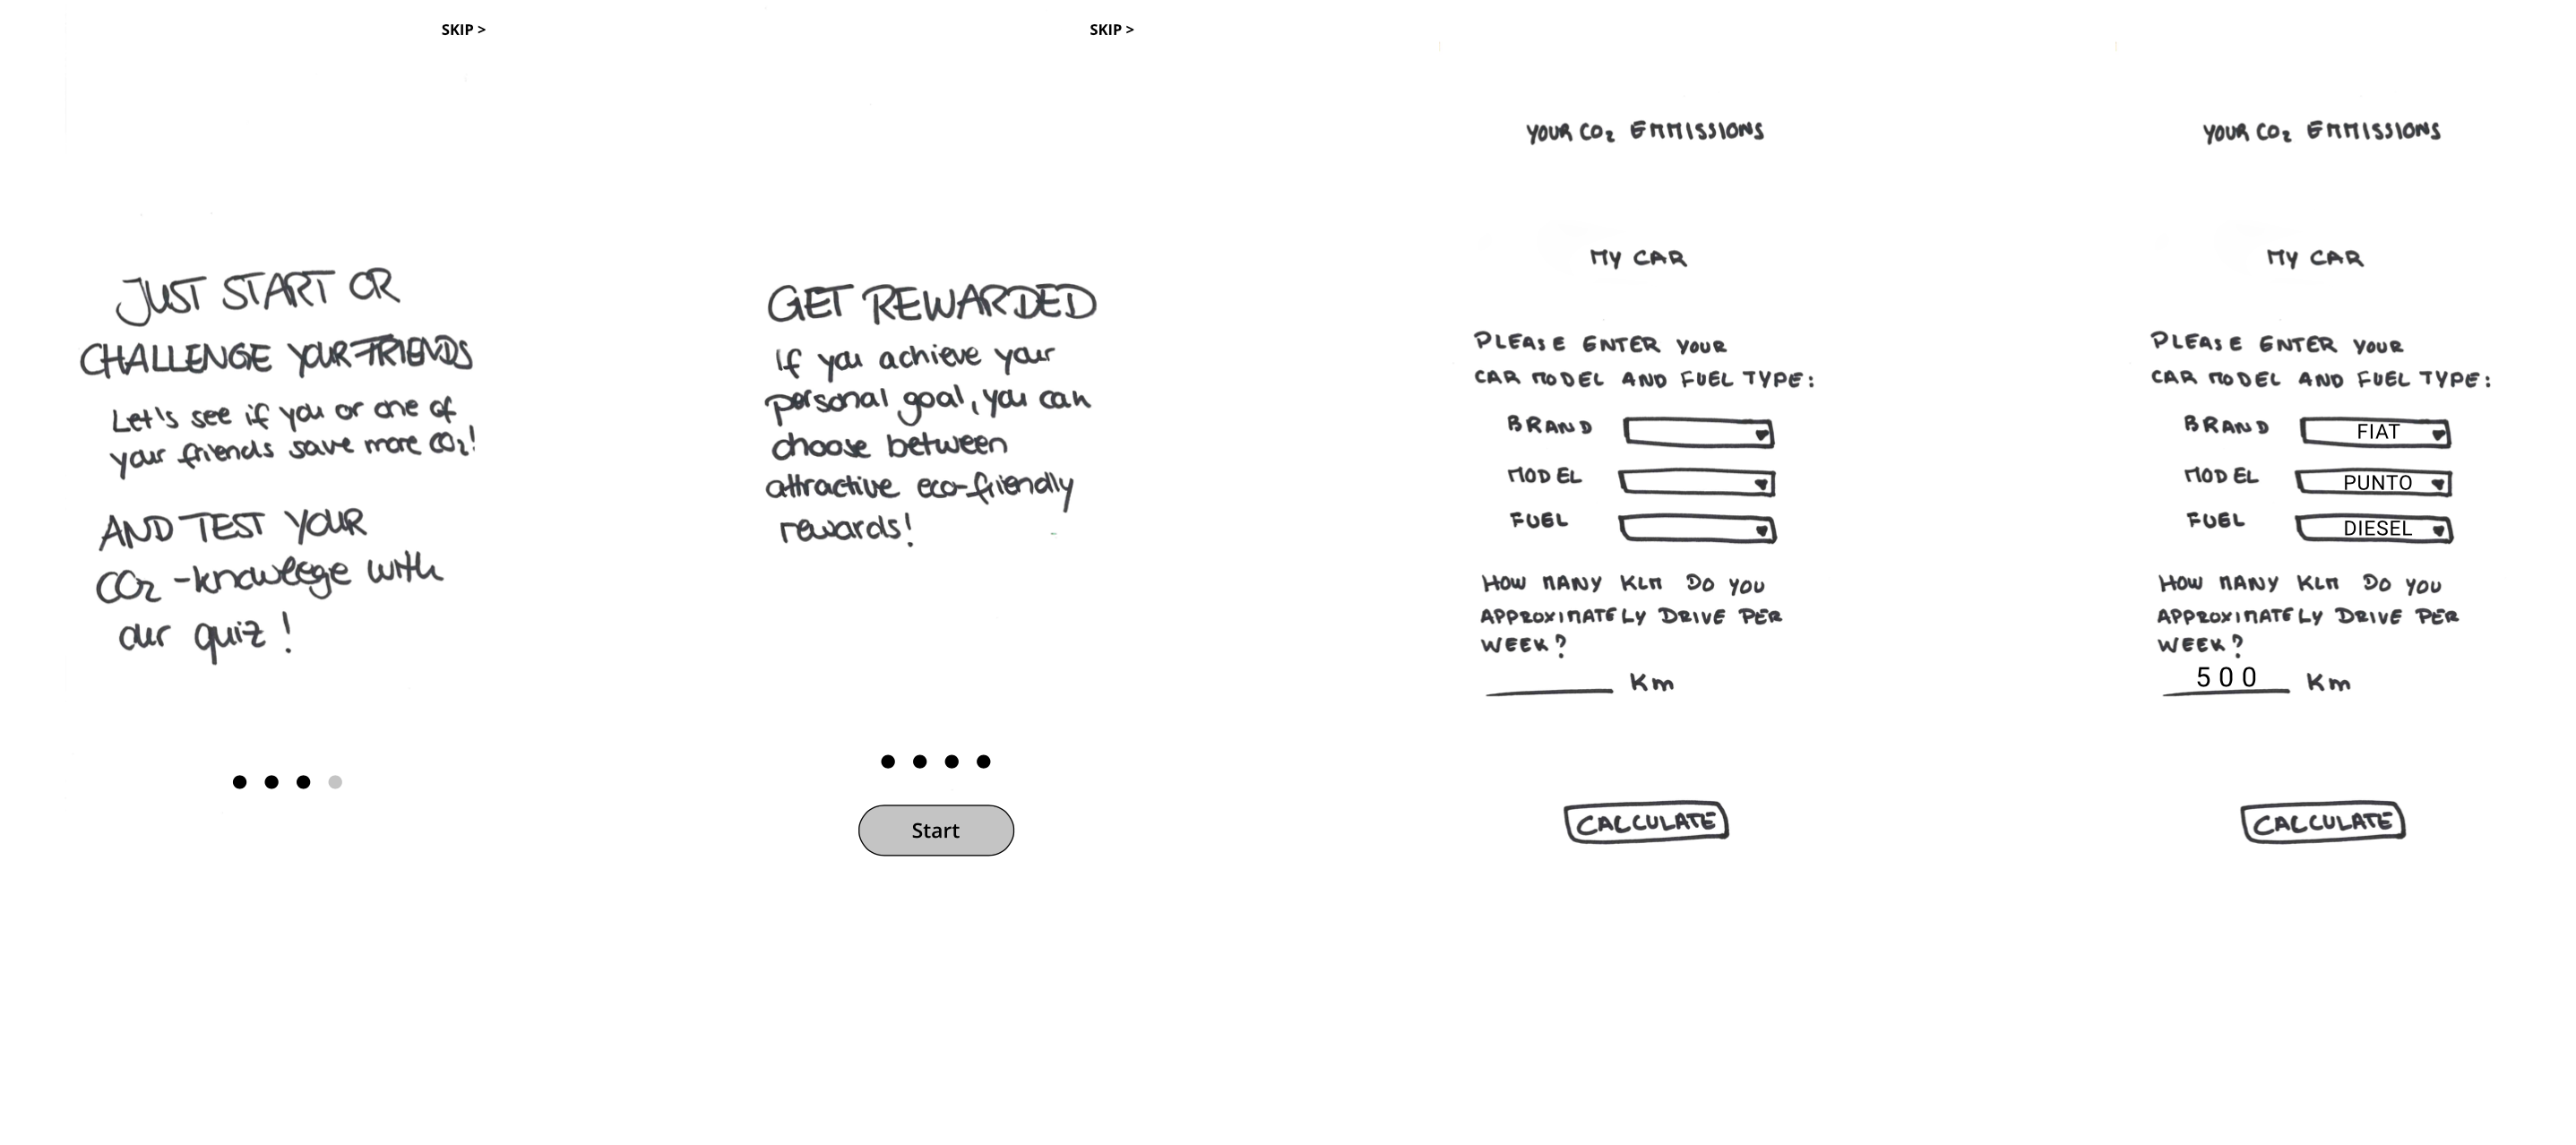 SKIP >
JUST START OR
CHALLENGE YOUR FRIENDS
Let's see if you or one of
your friends save more CO₂!
AND TEST YOUR
CO₂ -knowlege with
our quiz!
SKIP >
GET REWARDED
If you achieve your
personal goal, you can
choose between
attractive eco-friendly
rewards!
Start
YOUR CO₂ EMMISSIONS
MY CAR
PLEASE ENTER YOUR
CAR MODEL AND FUEL TYPE:
BRAND
MODEL
FUEL
HOW MANY KLM DO YOU
APPROXIMATELY DRIVE PER
WEEK?
Km
CALCULATE
YOUR CO₂ EMMISSIONS
MY CAR
PLEASE ENTER YOUR
CAR MODEL AND FUEL TYPE:
BRAND FIAT
MODEL PUNTO
FUEL DIESEL
HOW MANY KLM DO YOU
APPROXIMATELY DRIVE PER
WEEK?
500 Km
CALCULATE